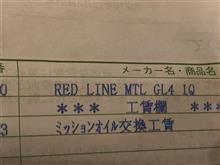 番 メーカー名・商品名
0 RED LINE MTL GL4 1Q
*** 工賃欄 ***
3 ミッションオイル交換工賃